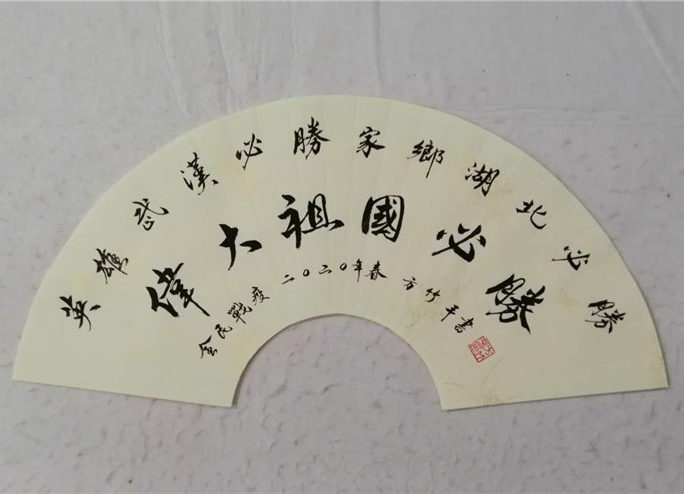 英雄武漢必勝家鄉湖北必勝
偉大祖國必勝
全民戰疫 二〇二〇年春 方竹平書